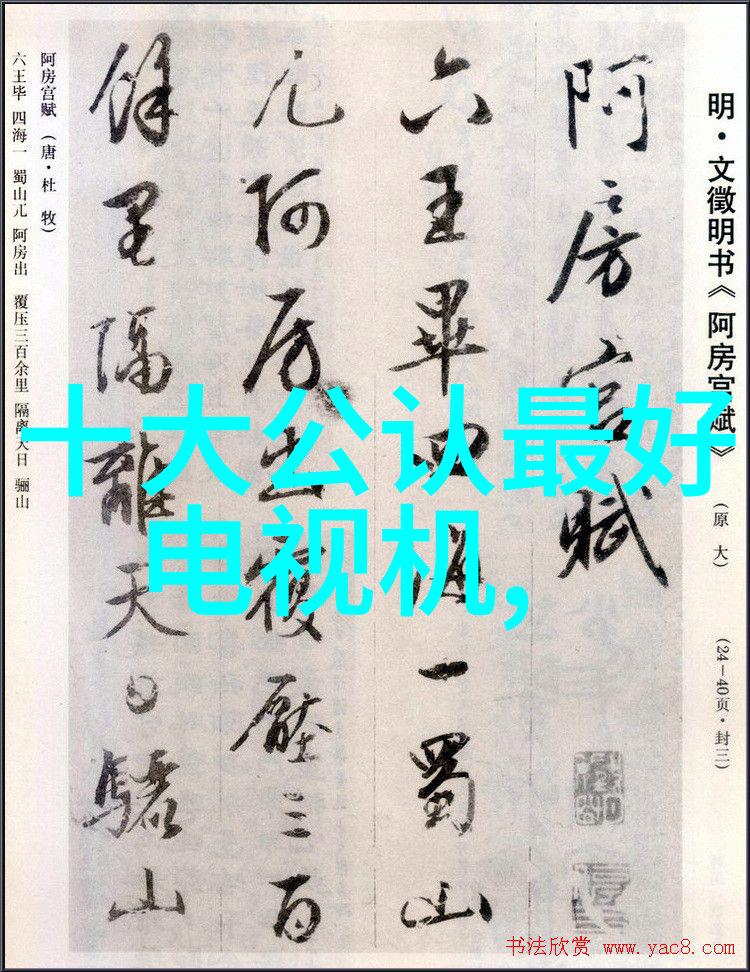 明·文徵明书《阿房宫赋》（原大）（24－40页·封三）
阿房宫赋
六王畢四海一蜀山
兀阿房出覆壓三百
餘里隔離天日驪山
阿房宫赋（唐·杜牧）
六王毕 四海一 蜀山兀 阿房出 覆压三百余里 隔离天日 骊山
十大公认最好
电视机,
书法欣赏 www.yac8.com